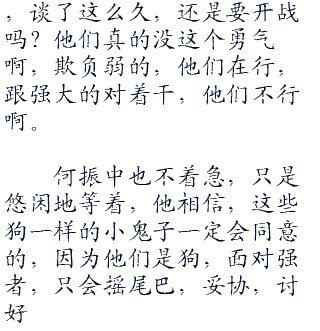 ，谈了这么久，还是要开战
吗？他们真的没这个勇气
啊，欺负弱的，他们在行，
跟强大的对着干，他们不行
啊。
何振中也不着急，只是
悠闲地等着，他相信，这些
狗一样的小鬼子一定会同意
的，因为他们是狗，面对强
者，只会摇尾巴，妥协，讨
好